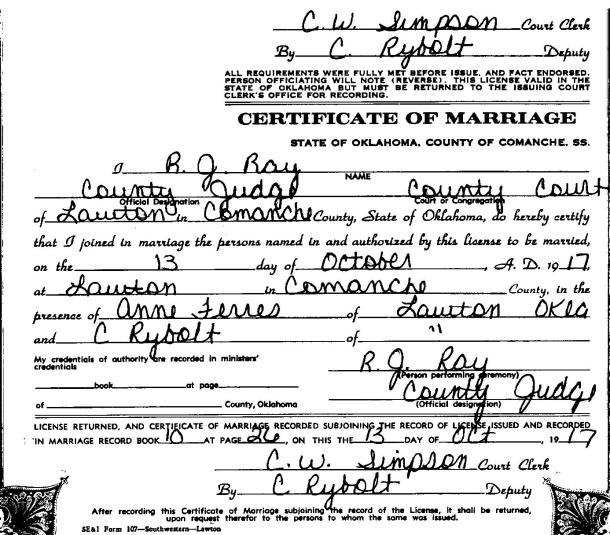 C. W. Simpson Court Clerk
By C. Rybolt Deputy
ALL REQUIREMENTS WERE FULLY MET BEFORE ISSUE, AND FACT ENDORSED.
PERSON OFFICIATING WILL NOTE (REVERSE). THIS LICENSE VALID IN THE
STATE OF OKLAHOMA BUT MUST BE RETURNED TO THE ISSUING COURT
CLERK'S OFFICE FOR RECORDING.
CERTIFICATE OF MARRIAGE
STATE OF OKLAHOMA, COUNTY OF COMANCHE, SS.
I R. J. Ray
NAME
County Judge County Court
Official Designation Court or Congregation
of Lawton in Comanche County, State of Oklahoma, do hereby certify
that I joined in marriage the persons named in and authorized by this license to be married,
on the 13 day of October, A. D. 1917,
at Lawton in Comanche County, in the
presence of Anne Ferres of Lawton Okla
and C Rybolt of "
My credentials of authority are recorded in ministers'
credentials
R. J. Ray
(Person performing ceremony)
book at page
County Judge
of County, Oklahoma (Official designation)
LICENSE RETURNED, AND CERTIFICATE OF MARRIAGE RECORDED SUBJOINING THE RECORD OF LICENSE ISSUED AND RECORDED
IN MARRIAGE RECORD BOOK 10 AT PAGE 26, ON THIS THE 13 DAY OF Oct, 1917
C. W. Simpson Court Clerk
By C Rybolt Deputy
After recording this Certificate of Marriage subjoining the record of the License, it shall be returned,
upon request therefor to the persons to whom the same was issued.
SE&I Form 107—Southwestern—Lawton